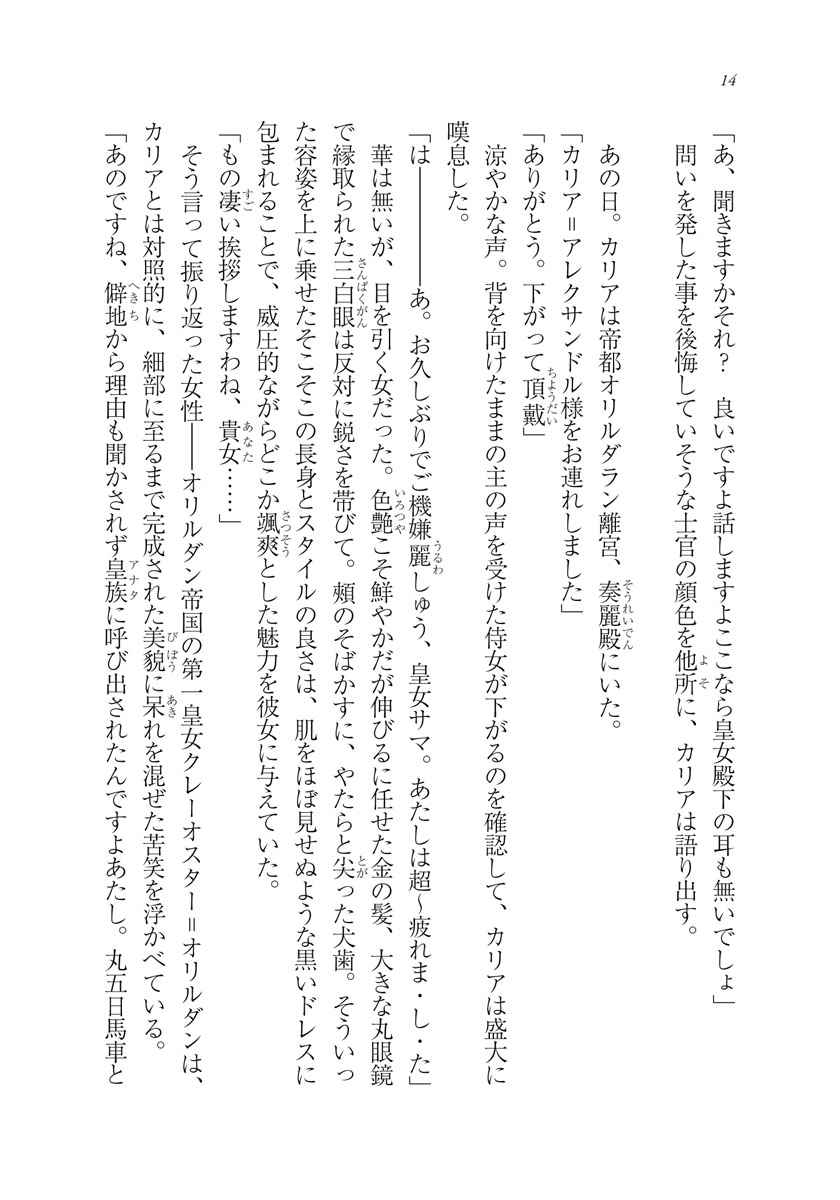 14
「あ、聞きますかそれ？　良いですよ話しますよここなら皇女殿下の耳も無いでしょ」
問いを発した事を後悔していそうな士官の顔色を他所に、カリアは語り出す。
あの日。カリアは帝都オリルダラン離宮、奏麗殿にいた。
「カリア＝アレクサンドル様をお連れしました」
「ありがとう。下がって頂戴」
涼やかな声。背を向けたままの主の声を受けた侍女が下がるのを確認して、カリアは盛大に
嘆息した。
「は――――あ。お久しぶりでご機嫌麗しゅう、皇女サマ。あたしは超～疲れま・し・た」
華は無いが、目を引く女だった。色艶こそ鮮やかだが伸びるに任せた金の髪、大きな丸眼鏡
で縁取られた三白眼は反対に鋭さを帯びて。頬のそばかすに、やたらと尖った犬歯。そういっ
た容姿を上に乗せたそこそこの長身とスタイルの良さは、肌をほぼ見せぬような黒いドレスに
包まれることで、威圧的ながらどこか颯爽とした魅力を彼女に与えていた。
「もの凄い挨拶しますわね、貴女……」
そう言って振り返った女性――オリルダン帝国の第一皇女クレーオスター＝オリルダンは、
カリアとは対照的に、細部に至るまで完成された美貌に呆れを混ぜた苦笑を浮かべている。
「あのですね、僻地から理由も聞かされず皇族に呼び出されたんですよあたし。丸五日馬車と